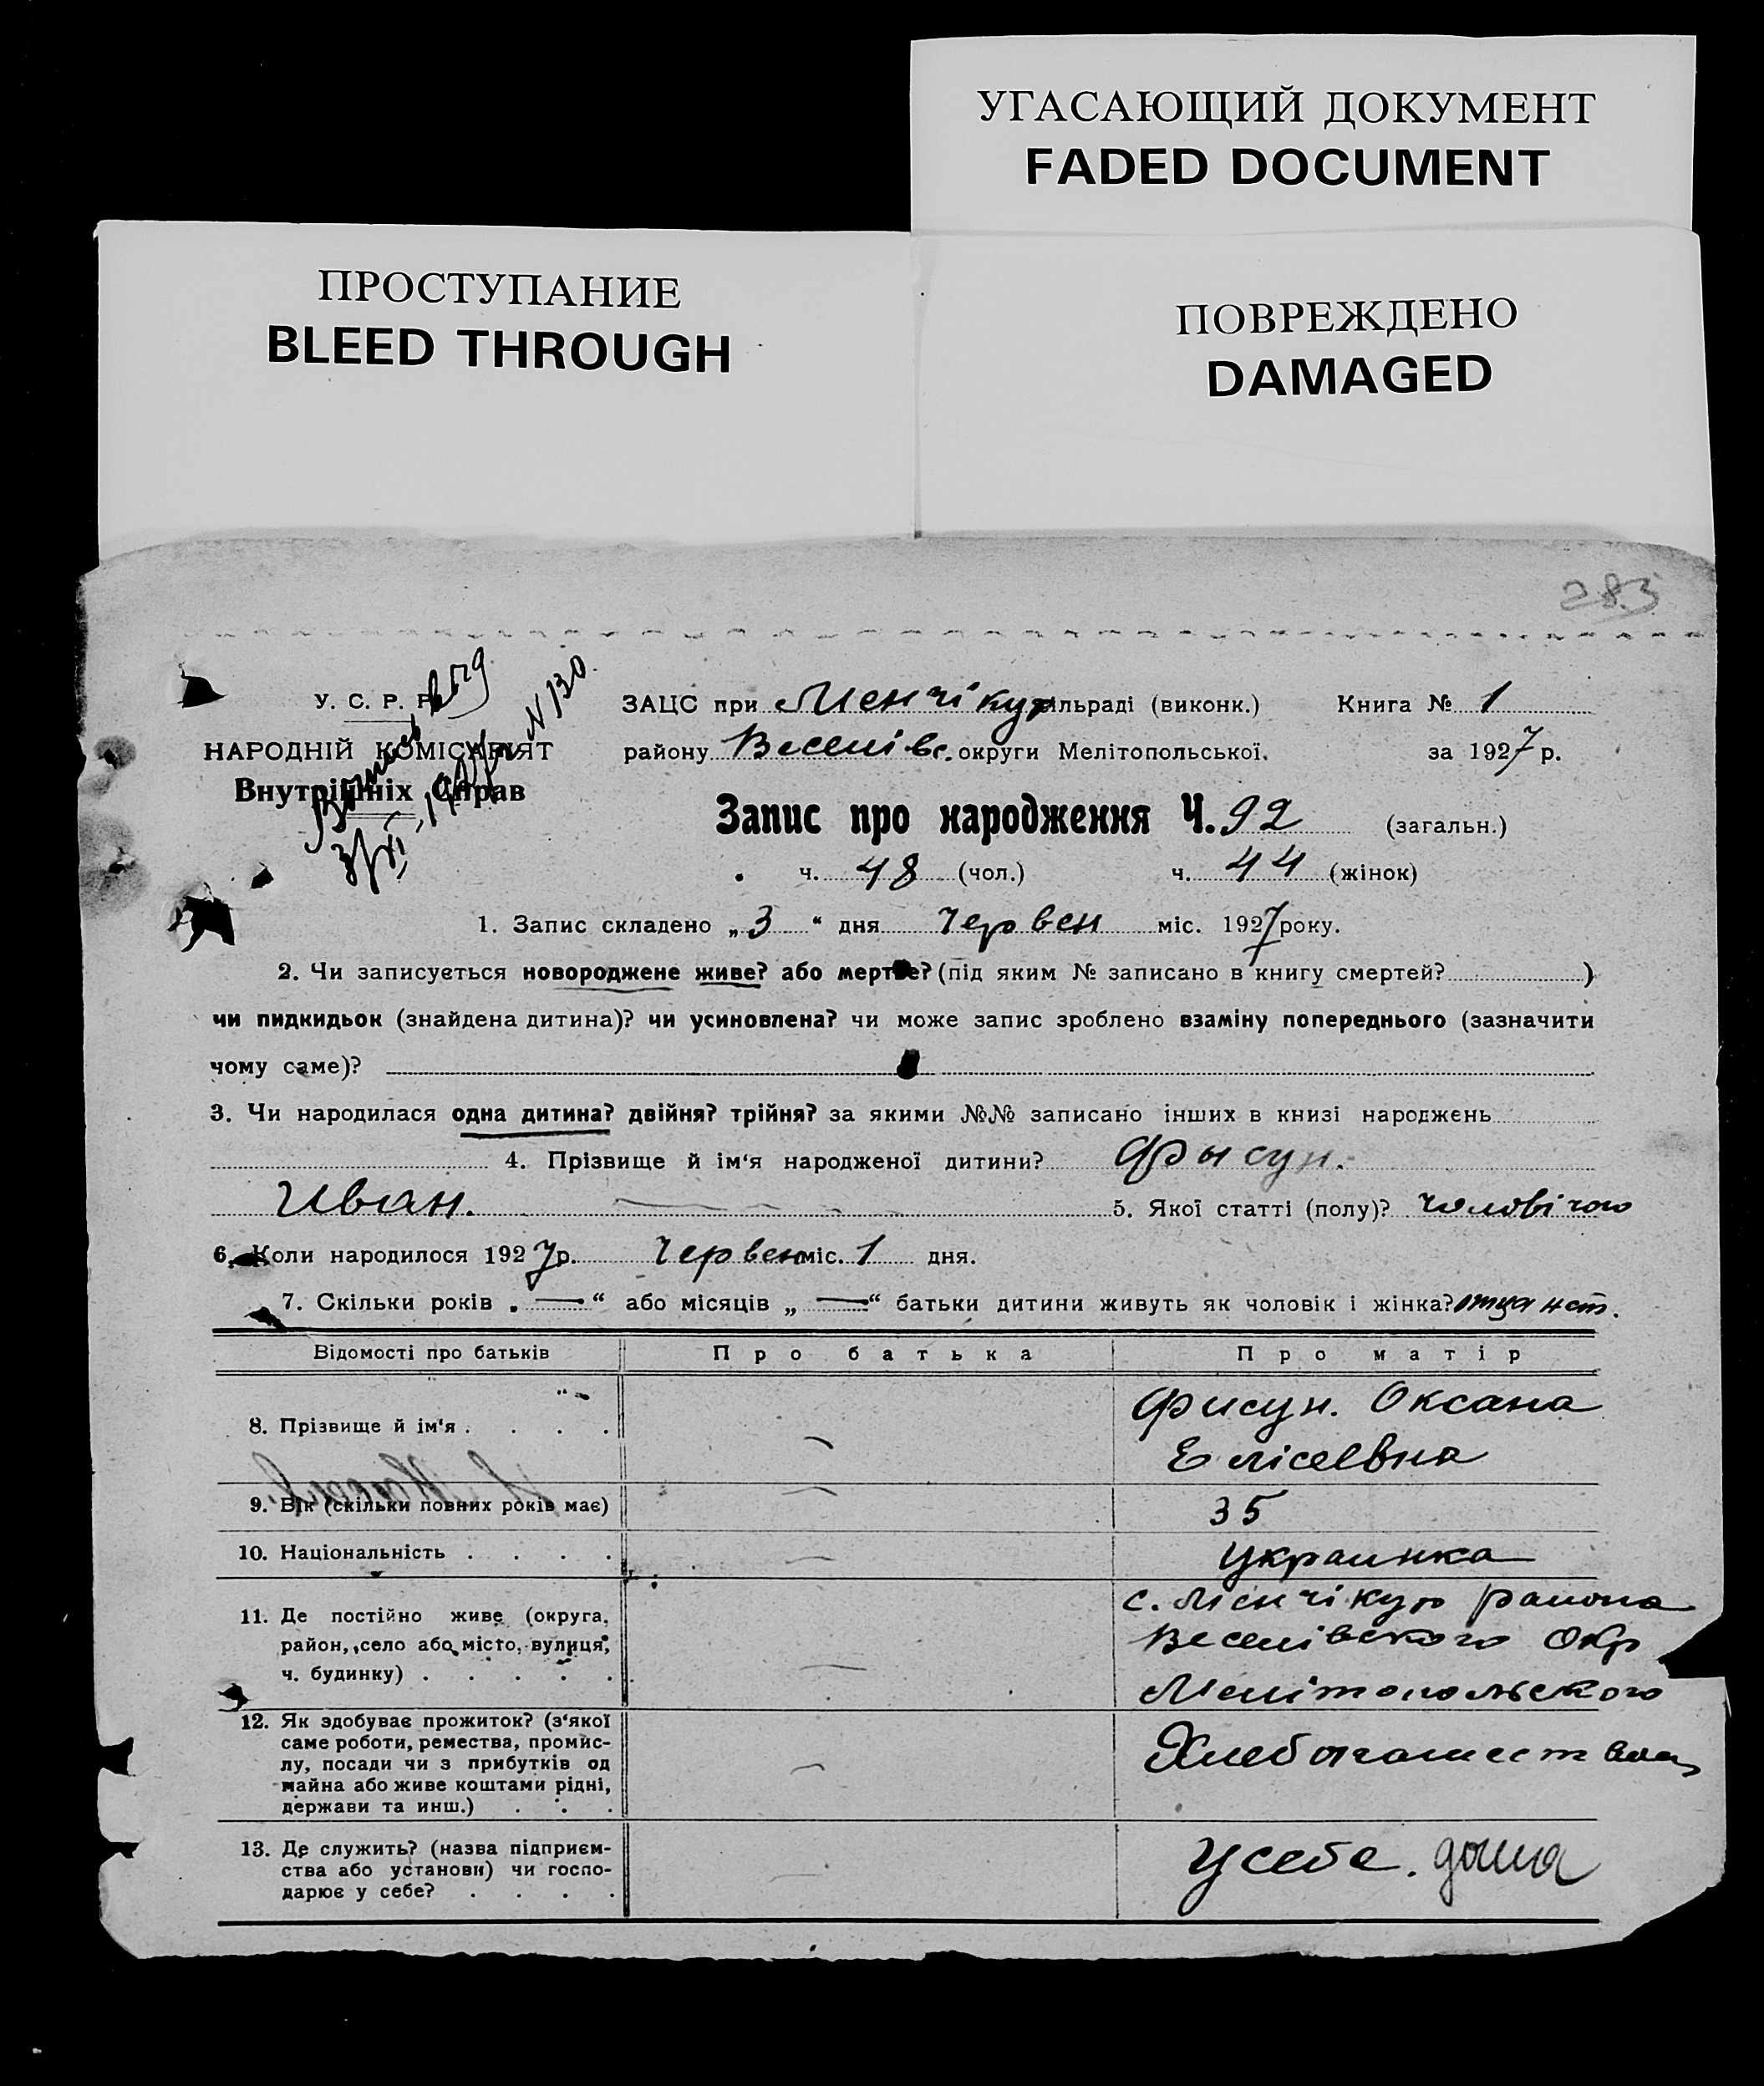 УГАСАЮЩИЙ ДОКУМЕНТ
FADED DOCUMENT
ПРОСТУПАНИЕ
BLEED THROUGH
ПОВРЕЖДЕНО
DAMAGED
283
У. С. Р. Р.
НАРОДНІЙ КОМІСАРІЯТ
Внутрішніх Справ
N 130.
ЗАЦС при Менчікур сільраді (виконк.) Книга № 1
району Веселівс. округи Мелітопольської. за 1927 р.
Запис про народження Ч. 92 (загальн.)
ч. 48 (чол.) ч. 44 (жінок)
1. Запис складено „ 3 “ дня Червен міс. 1927 року.
2. Чи записується новороджене живе? або мертве? (під яким № записано в книгу смертей? )
чи пидкидьок (знайдена дитина)? чи усиновлена? чи може запис зроблено взаміну попереднього (зазначити
чому саме)?
3. Чи народилася одна дитина? двійня? трійня? за якими №№ записано інших в книзі народжень
4. Прізвище й ім‘я народженої дитини? Фысун.
Иван. 5. Якої статті (полу)? чоловічого
6. Коли народилося 1927 р. Червен міс. 1 дня.
7. Скільки років „ — “ або місяців „ — “ батьки дитини живуть як чоловік і жінка? отца нет.
Відомості про батьків Про батька Про матір
8. Прізвище й ім‘я . . . . Фисун. Оксана
Елісеевна
9. Вік (скільки повних років має) 35
10. Національність . . . . Украинка
11. Де постійно живе (округа, с. Менчікур района
район, село або місто, вулиця, Веселівского Окр
ч. будинку) . . . . . Мелітопольского
12. Як здобуває прожиток? (з‘якої
саме роботи, ремества, промис-
лу, посади чи з прибутків од
майна або живе коштами рідні,
держави та инш.) . . .
13. Де служить? (назва підприєм-
ства або установи) чи госпо-
дарює у себе? . . . . У себе. дома